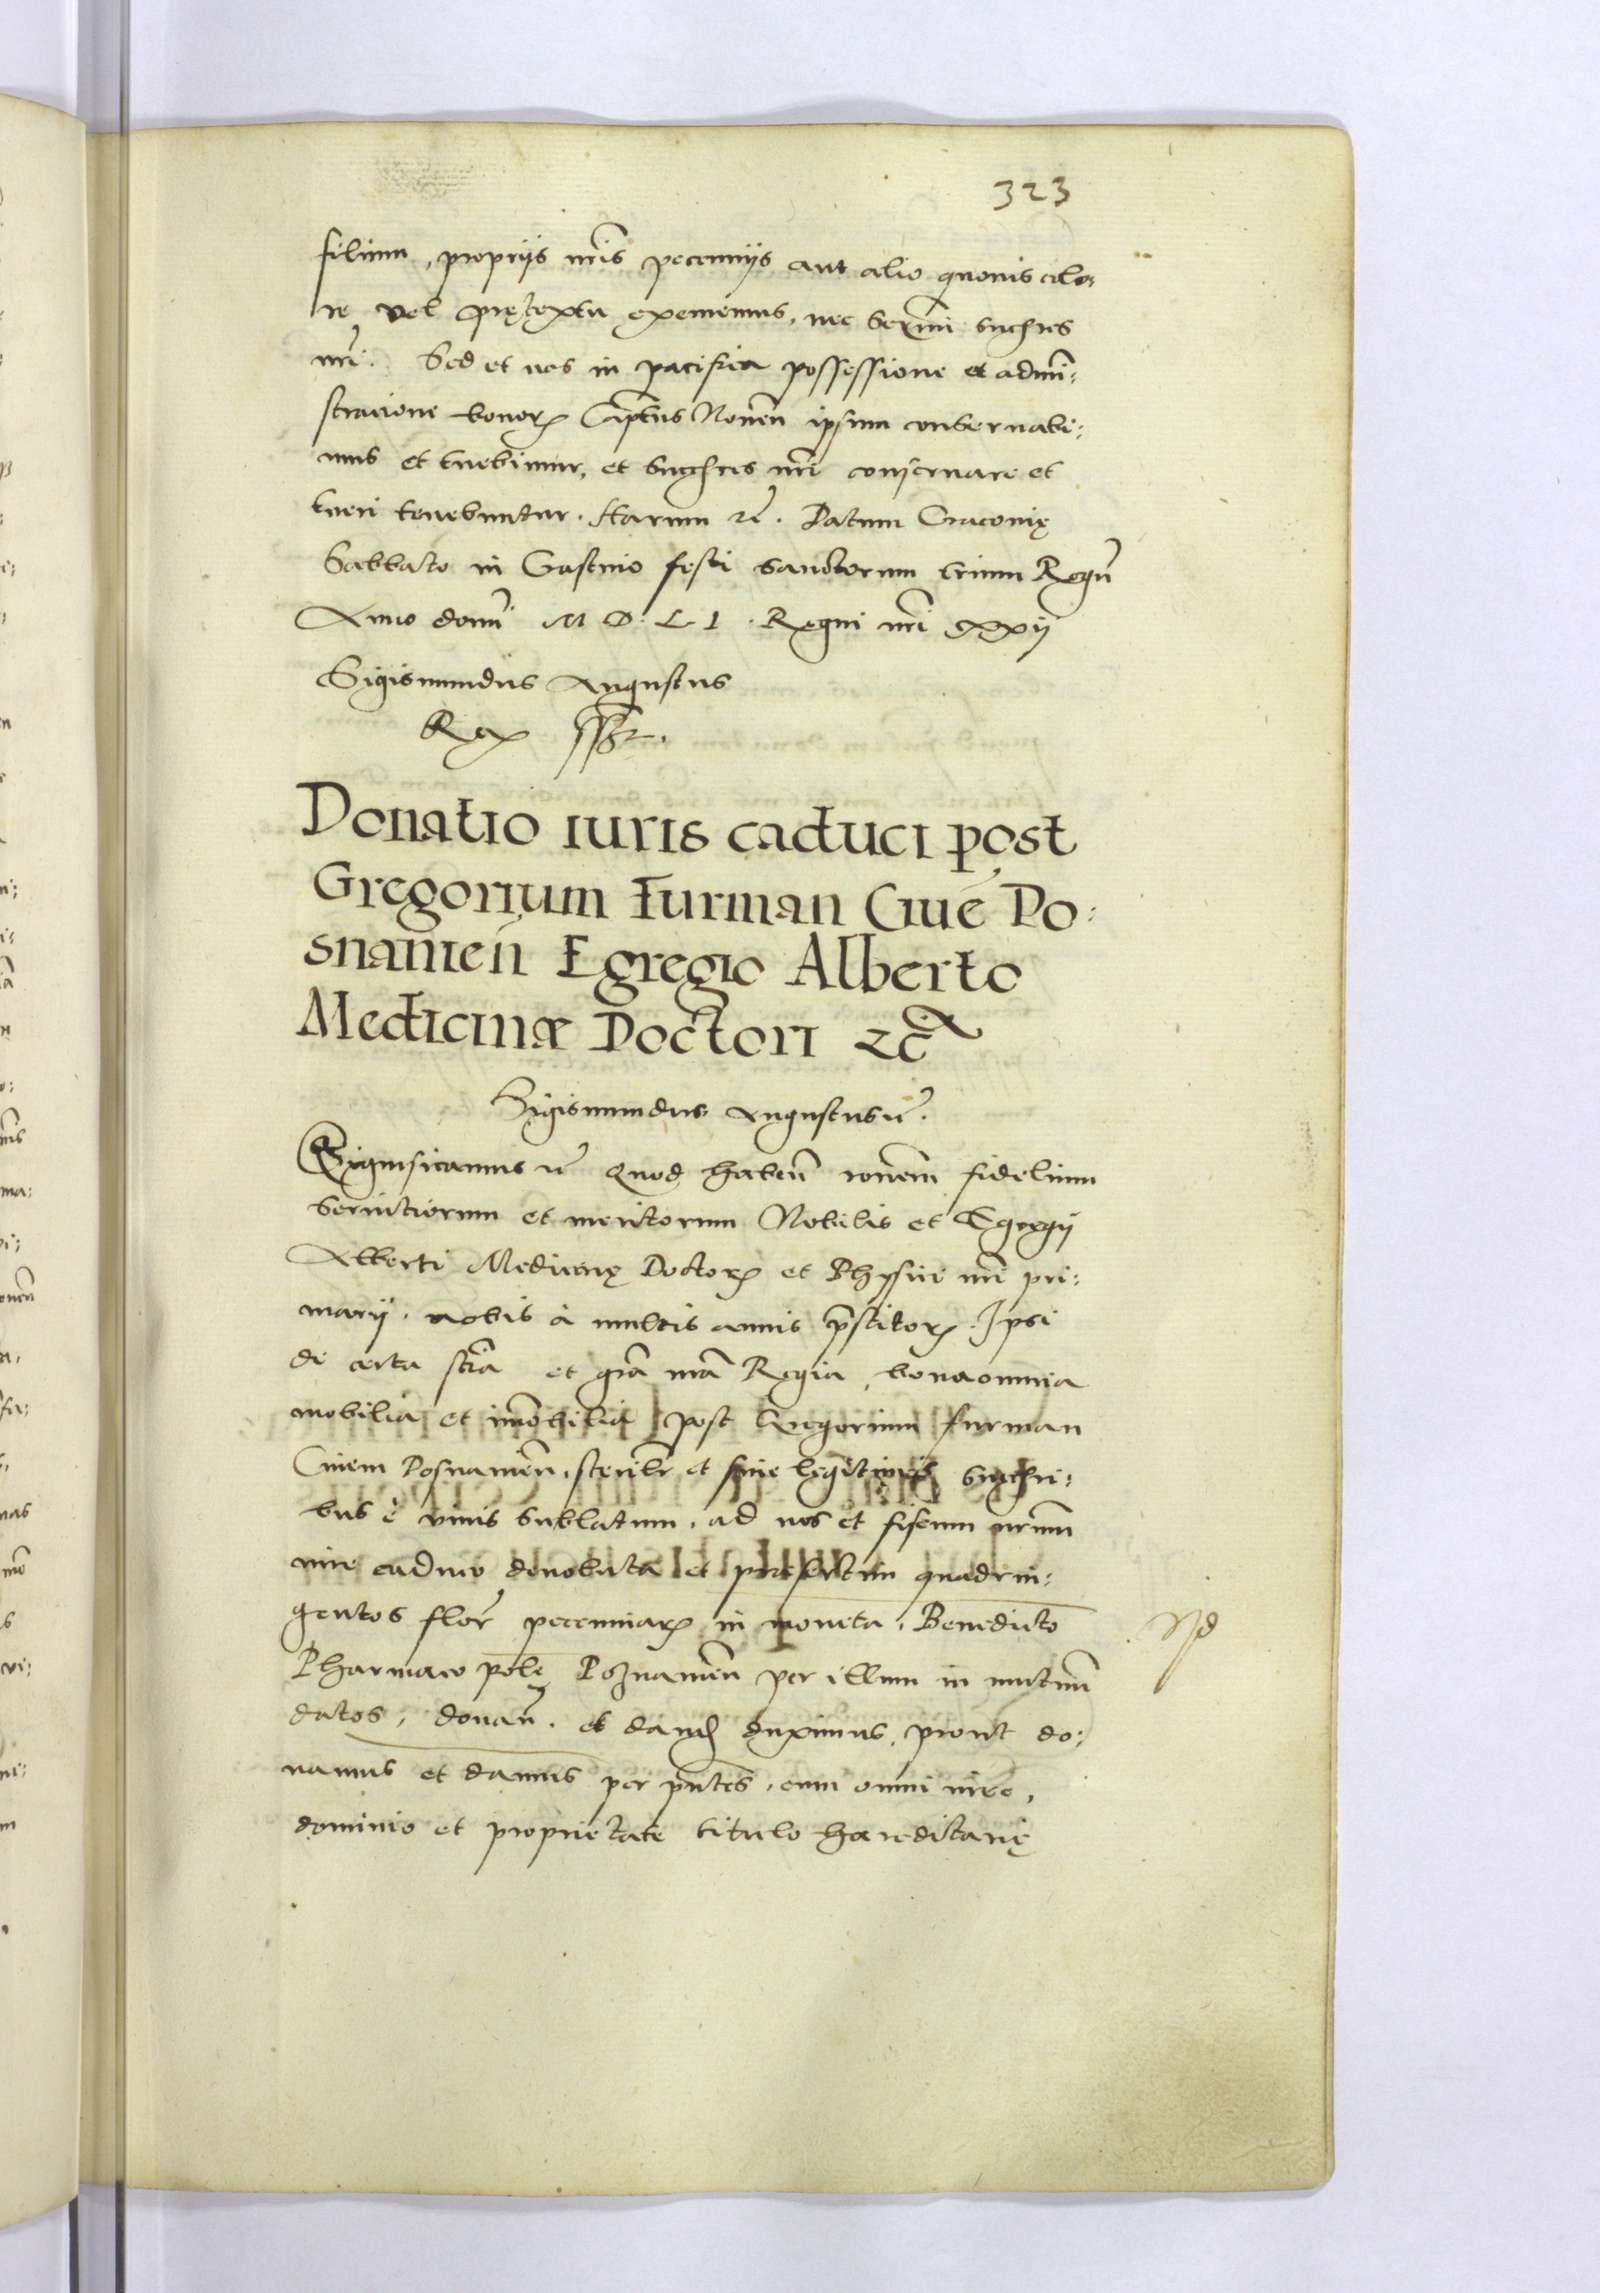 323
filium, proprijs nr̃is pecunijs aut alio quouis colo:
re vel prętextu exememus, nec Serṽi succhres
nr̃i. Sed et nos in pacifica possessione et admi:
stratione bonorꝝ Capitẽus Nouẽn ipsum conseruabi:
mus et tuebimur, et succhres nr̃i conseruare et
tueri tenebuntur. Harum rc̃. Datum Cracouię
Sabbato in Crastino festi sanctorum trium Regũ
Anno domi M D. L I. Regni nr̃i xxij
Sigismundus Augustus
Rex sst.
Donatio iuris caduci post
Gregorium Furman Ciuẽ Po:
snanień Egregio Alberto
Medicinæ Doctori ⁊c̃
Sigismundus Augustus rc̃.
Significamus rc̃ Quod habeñ rõnem fidelium
Seruitiorum et meritorum Nobilis et Egregij
Alberti Medicinę Doctorꝝ et Physici nr̃i pri:
marij, nobis à multis annis p̃stitorꝝ. Ipsi
de certa sciã et gr̃a nr̃a Regia, bona omnia
mobilia et im̃obilia post Gregorium Furman
Ciuem Posnanieñ, sterilẽ et sine legitimis succhri:
bus è viuis sublatum, ad nos et fiscum nr̃um
iure caduco deuoluta et presertim quadrin:
gentos floř pecuniarꝝ in moneta, Benedicto
Pharmacopolę Poznanień per illum in mutuũ
datos, donañ. et dand duximus, prout do:
namus et damus per pñtes, cum omni iure,
dominio et proprietate titulo hæreditarię